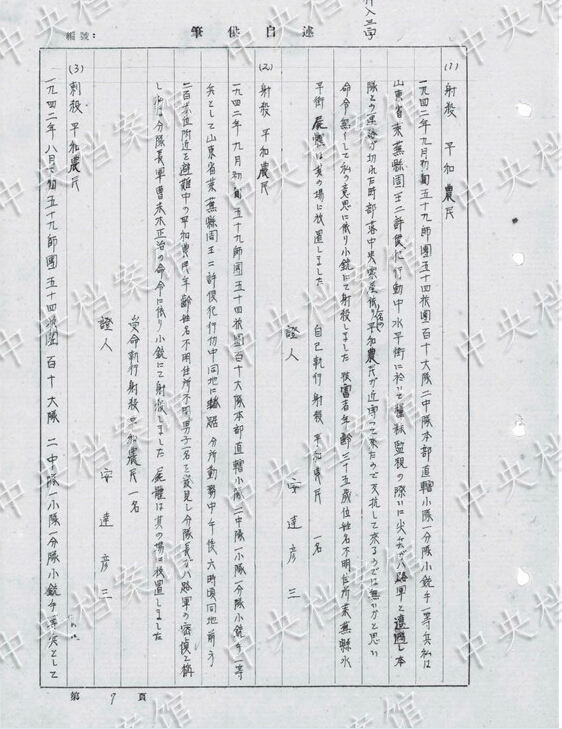 述自供筆
編號：
(1) 射殺 平和農民
一九四二年九月初旬五十九師團五十四旅團百十大隊二中隊本部直轄小隊一分隊小銃手一等兵私は
山東省萊蕪縣周王二許侵犯行動中水平街に於いて警戒監視の際に尖兵が八路軍と遭遇し本
隊との連絡が切れた時部落中央家屋
平和農民が近寄って来たので反抗して来るのでは無いかと思い
命令無くして私の意思に依り小銃にて射殺しました 被害者年齡三十五歲位姓名不明住所萊蕪縣水
平街 屍體は其の場に放置しました 自己執行射殺平和農民 一名
證人 安達彦三
(2) 射殺 平和農民
一九四二年九月初旬五十九師團五十四旅團百十大隊本部直轄小隊二中隊一小隊一分隊小銃手一等
兵として山東省萊蕪縣周王二許侵犯行動中同地に 分所勤務中午後六時頃同地前方
二百米位附近を避難中の平和農民年齡姓名不明住所不明男子一名を發見し分隊長が八路軍の密偵と稱
し 分隊長軍曹 木正治の命令に依り小銃にて射殺しました 屍體は其の場に放置しました
受命執行射殺平和農民一名
證人 安達彦三
(3) 刺殺 平和農民
一九四二年八月下旬五十九師團五十四旅團百十大隊二中隊一小隊一分隊小銃手一等兵として
第 7 頁
中央档案馆